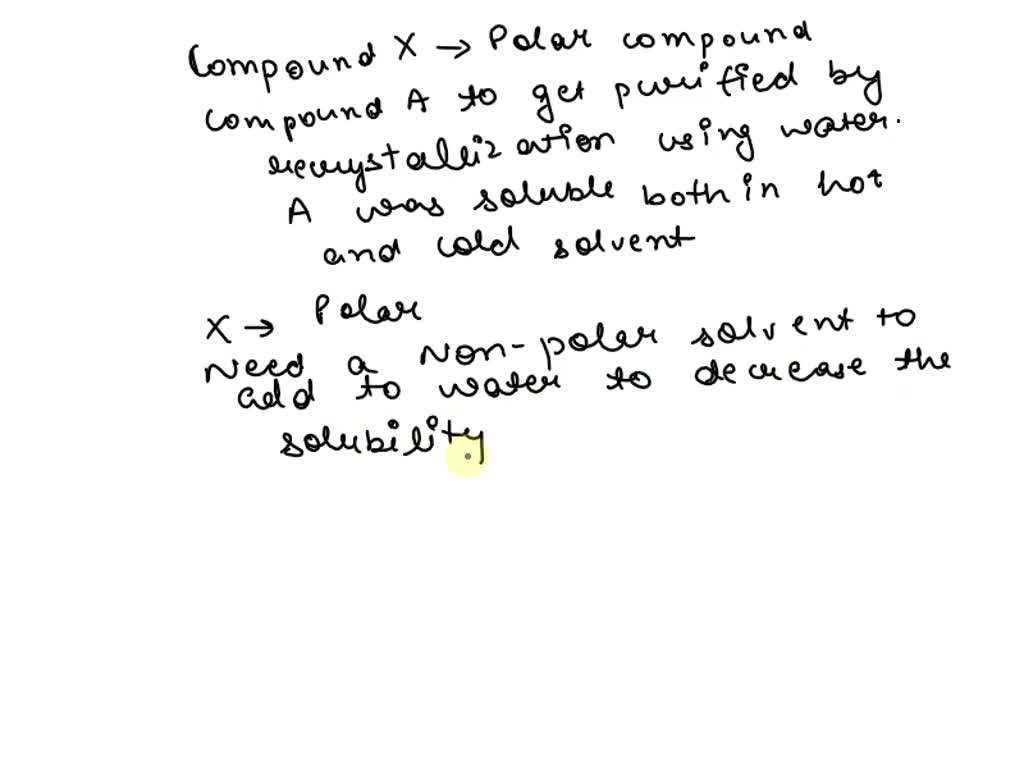 Compound X → Polar compound
compound A to get purified by
recrystallization using water.
A was soluble both in hot
and cold solvent
X → Polar
Need a Non-polar solvent to
add to water to decrease the
solubility